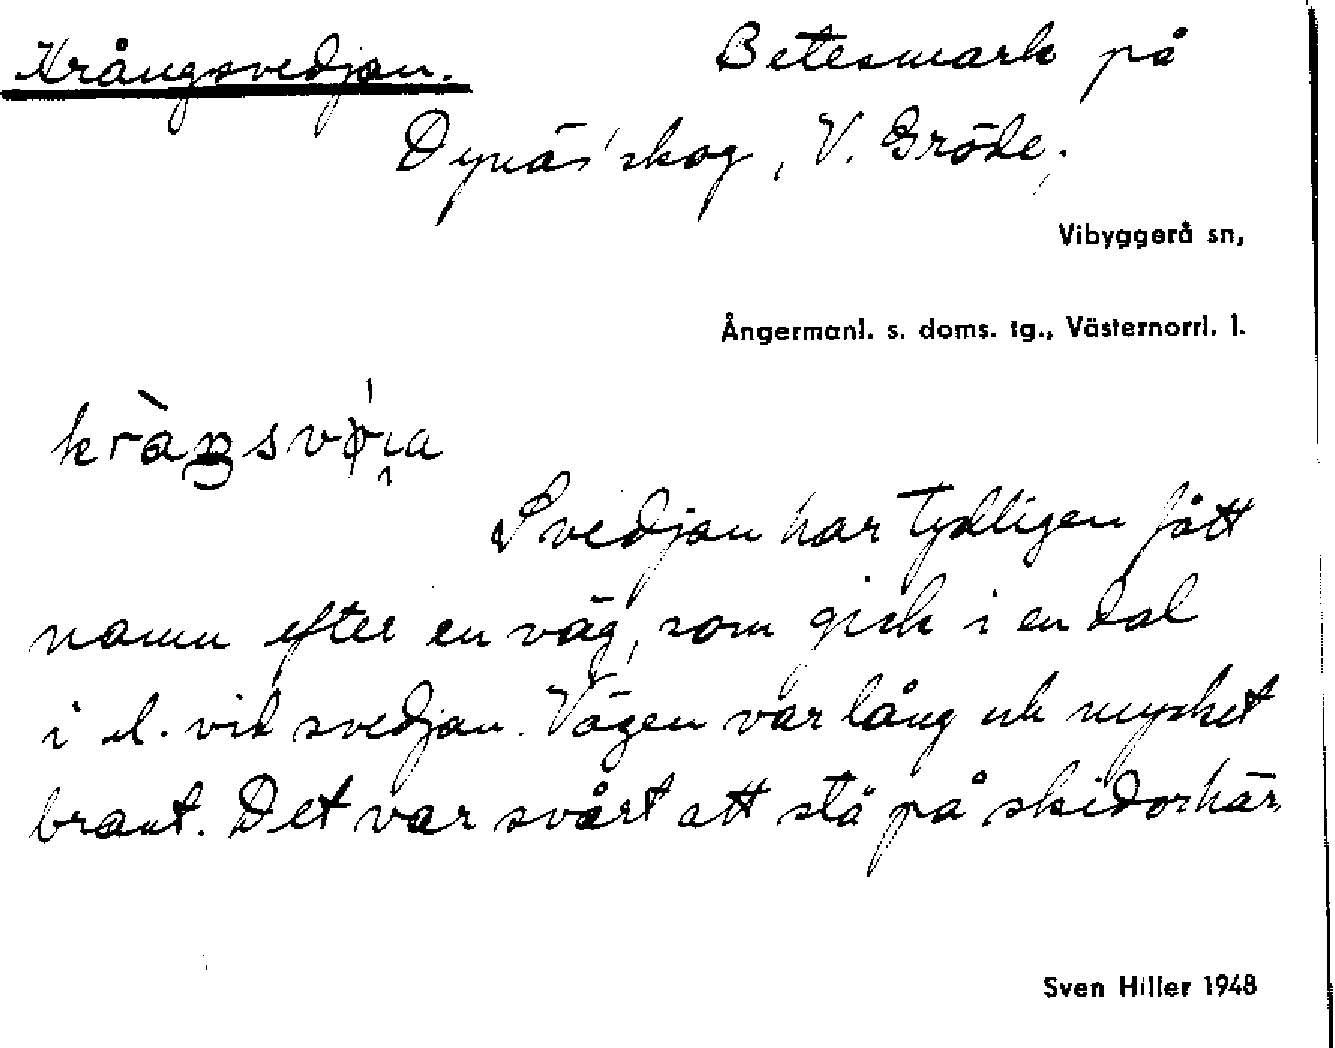 Krångsvedjan. Betesmark på
Dynäs' skog, V. Gröde,
Vibyggerå sn,
Ångermanl. s. doms. tg., Västernorrl. l.
Svedjan har tydligen fått
namn efter en väg, som gick i en dal
i el. vid svedjan. Vägen var lång och mycket
brant. Det var svårt att stå på skidor här.
Sven Hiller 1948